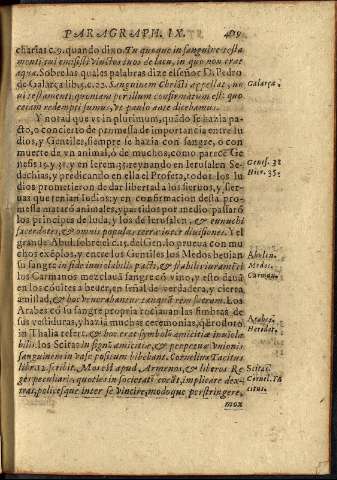 PARAGRAPH. IX.
charias c. 9. quando dixo. Tu quoque in sanguine testa
menti tui emisisti vinctos tuos de lacu, in quo non erat
aqua. Sobre las quales palabras dize el señor D. Pedro
de Galarça lib. 5. c. 22. Sanguinem Christi appellat, no
ui testamenti, quoniam per illum confirmatum est: quo
etiam redempti sumus, vt paulo ante dicebamus.
Galarça.
Y notad que vt in plurimum, quãdo se hazia pa-
cto, o concierto de promessa de importancia entre Iu
dios, y Gentiles, siempre se hazia con sangre, o con
muerte de vn animal, ò de muchos, como parece Ge
nesis 15. y 31. y en Ierem. 35. reynando en Ierusalen Se-
dechias, y predicando en ella el Profeta, todos los Iu
dios prometieron de dar libertad a los sieruos, y sier-
uas que tenian Iudios: y en confirmacion desta pro-
messa mataró animales, y partidos por medio passaró
los principes de Iuda, y los de Ierusalen, & eunuchi
sacerdotes, & omnis populus terræ inter diuisiones. Y el
grande Abul. sobre el c. 15. del Gen. lo prueua con mu
chos exéplos, y entre los Gentiles los Medos beuian
su sangre in fidé inuiolabilis pacti, & stabilis iuraméti
Los Carmanos mezclauã sangre có vino, y esto dauã
en los cóuites a beuer, en señal de verdadera, y cierta
amistad, & hoc venerabantur tanquã rem sacram. Los
Arabes có su sangre propria rociauan las fimbrias de
sus vestiduras, y hazia muchas ceremonias, q̃ Erodoto
in Thalia refert, & hoc erat symbolũ amicitiæ inuiola
bilis. los Scitas in signũ amicitiæ, & perpetuæ vnionis
sanguinem in vase positum bibebant. Cornelius Tacitus
libr. 12. scribit. Mos est apud Armenos, & Iiberos Re
ges peculiaris, quoties in societatẽ coeũt, implicare dex-
tras, pollicesque inter se vincire, modoque perstringere,
mox
Genes. 31
Hier. 35.
Abulen.
Medos.
Carman.
Arabes.
Herodot.
Scitas.
Cornel. Ta
citus.